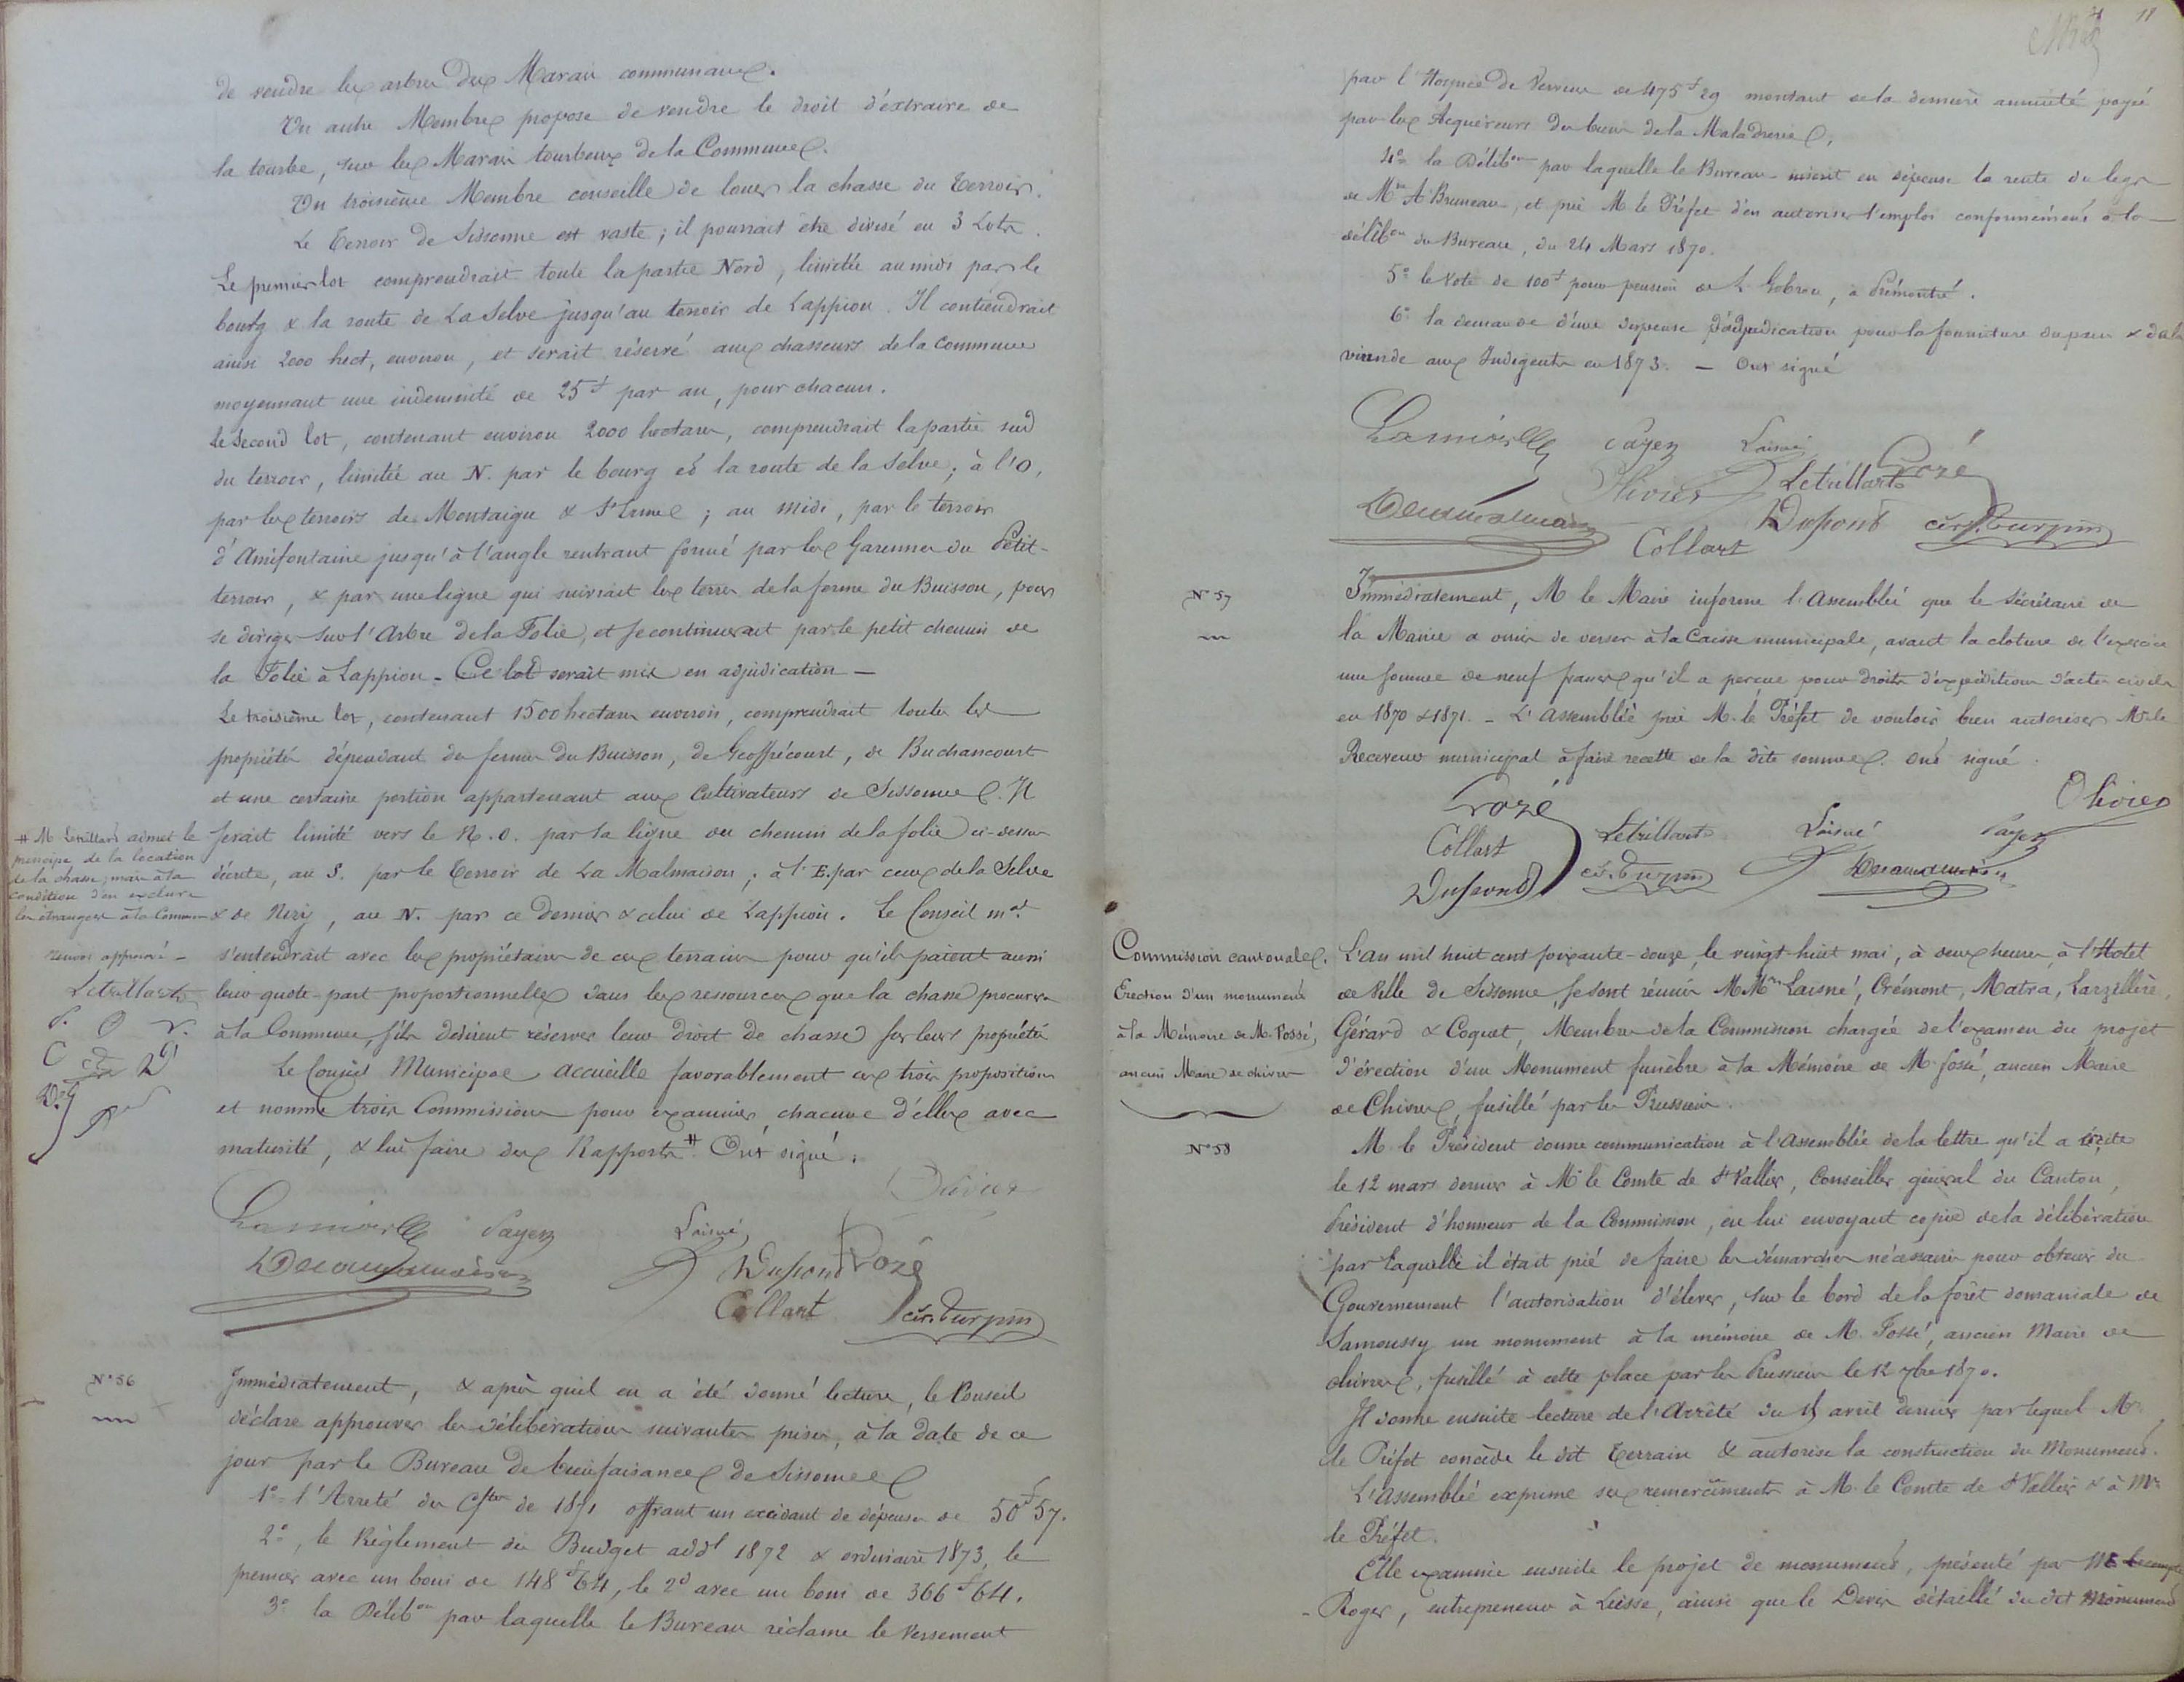 de vendre les arbres des Marais communaux.
Un autre Membre propose de vendre le droit d'extraire de
la tourbe, sur les Marais tourbeux de la Commune.
Un troisième Membre conseille de louer la chasse du Terroir.
Le Terroir de Sissonne est vaste; il pourrait être divisé en 3 Lots.
Le premier lot comprendrait toute la partie Nord, limitée au midi par le
bourg & la route de La Selve jusqu'au terroir de Lappion. Il contiendrait
ainsi 2000 hect, environ, et serait réservé aux chasseurs de la Commune
moyennant une indemnité de 25f par an, pour chacun.
Le Second lot, contenant environ 2000 hectares, comprendrait la partie sud
du terroir, limitée au N. par le bourg et la route de la Selve; à l'O,
par les terroirs de Montaigu & St Erme; au midi, par le terroir
d'Amifontaine jusqu'à l'angle rentrant formé par les Garennes du Petit-
terroir, & par une ligne qui suivrait les terres de la ferme du Buisson, pour
se diriger sur l'Arbre de la Folie, et se continuerait par le petit chemin de
la Folie à Lappion - Ce lot serait mis en adjudication -
Le troisième lot, contenant 1500 hectares environ, comprendrait toutes les
propriétés dépendant des fermes du Buisson, de Geoffrécourt, de Buchancourt
et une certaine portion appartenant aux Cultivateurs de Sissonne. Il
serait limité vers le N.O. par la ligne du chemin de la folie ci-dessus
décrite, au S. par le Terroir de La Malmaison; à l'E. par ceux de la Selve
& de Nizy, au N. par ce dernier & celui de Lappion. Le Conseil mal
s'entendrait avec les propriétaires de ces terrains pour qu'ils paient aussi
leur quote-part proportionnelle dans les ressources que la chasse procurera
à la Commune, s'ils désirent réserver leur droit de chasse sur leurs propriétés
Le Conseil Municipal accueille favorablement ces trois propositions
et nomme trois Commissions pour examiner chacune d'elles avec
maturité, & lui faire des Rapports #. Ont signé.
# M Létrillart admet le
principe de la location
de la chasse; mais à la
condition d'en exclure
les étrangers à la Commune
renvoi approuvé -
Létrillart
P. O V.
Olivier
Payen
Laisné
Dupont
Rozé
Collart
Turpin
N° 56
Immédiatement, & après qu'il en a été donné lecture, le Conseil
déclare approuver les délibérations suivantes prises, à la date de ce
jour par le Bureau de bienfaisance de Sissonne
1° l'Arrêté du Cpte de 1871 offrant un excédant de dépenses de 50f 57.
2°, le Règlement du Budget addl 1872 & ordinaire 1873, le
premier avec un boni de 148f 64, le 2d avec un boni de 366f 64.
3° la Délibon par laquelle le Bureau réclame le versement
11
par l'Hospice de Vervins de 475f 29 montant de la dernière annuité payée
par les Acquéreurs des biens de la Maladrerie.
4° la Délibon par laquelle le Bureau inscrit en dépense la rente du legs
de Mr A Bruneau, et prie M le Préfet d'en autoriser l'emploi conformément à la
délibon du Bureau, du 24 Mars 1870.
5° le vote de 100f pour pension de L Gobron, à Prémontré.
6° la demande d'une dispense d'adjudication pour la fourniture du pain & de la
viande aux Indigents en 1873. - Ont signé
Payen
Laisné
Rozé
Olivier
Létrillart
Dupont
Turpin
Collart
N° 57
Immédiatement, M le Maire informe l'Assemblée que le Secrétaire de
la Mairie a venir de verser à la Caisse municipale, avant la cloture de l'exercice
une somme de neuf francs qu'il a perçue pour droits d'expédition d'actes civils
en 1870 & 1871. - L'Assemblée prie M. le Préfet de vouloir bien autoriser Mr le
Receveur municipal à faire recette de la dite somme. Ont signé.
Olivier
Rozé
Collart
Létrillart
Laisné
Payen
Dupont
Turpin
Commission cantonale.
Erection d'un monument
à la Mémoire de M. Fossé,
ancien Maire de chivres
L'an mil huit cent soixante-douze, le vingt-huit mai, à deux heures, à l'Hotel
de Ville de Sissonne, se sont réunis MMrs Laisné, Crémont, Matra, Larzillière,
Gérard & Coquet, Membres de la Commission chargée de l'examen du projet
d'érection d'un Monument funèbre à la Mémoire de M. fossé, ancien Maire
de Chivres, fusillé par les Prussiens.
N° 58
M. le Président donne communication à l'Assemblée de la lettre qu'il a écrite
le 12 mars dernier à Mr le Comte de St Vallier, Conseiller général du Canton,
Président d'honneur de la Commission, en lui envoyant copie de la délibération
par laquelle il était prié de faire les démarches nécessaires pour obtenir du
Gouvernement l'autorisation d'élever, sur le bord de la forêt domaniale de
Samoussy un monument à la mémoire de M. Fossé, ancien Maire de
chivres, fusillé à cette place par les Prussiens le 12 7bre 1870.
Il donne ensuite lecture de l'Arrêté du avril dernier par lequel Mr
le Préfet concède le dit Terrain & autorise la construction du Monument.
L'Assemblée exprime ses remercîments à M. le Comte de St Vallier & à Mr
le Préfet.
Elle examine ensuite le projet de monument, présenté par M
Roger, entrepreneur à Liesse, ainsi que le Devis détaillé du dit monument